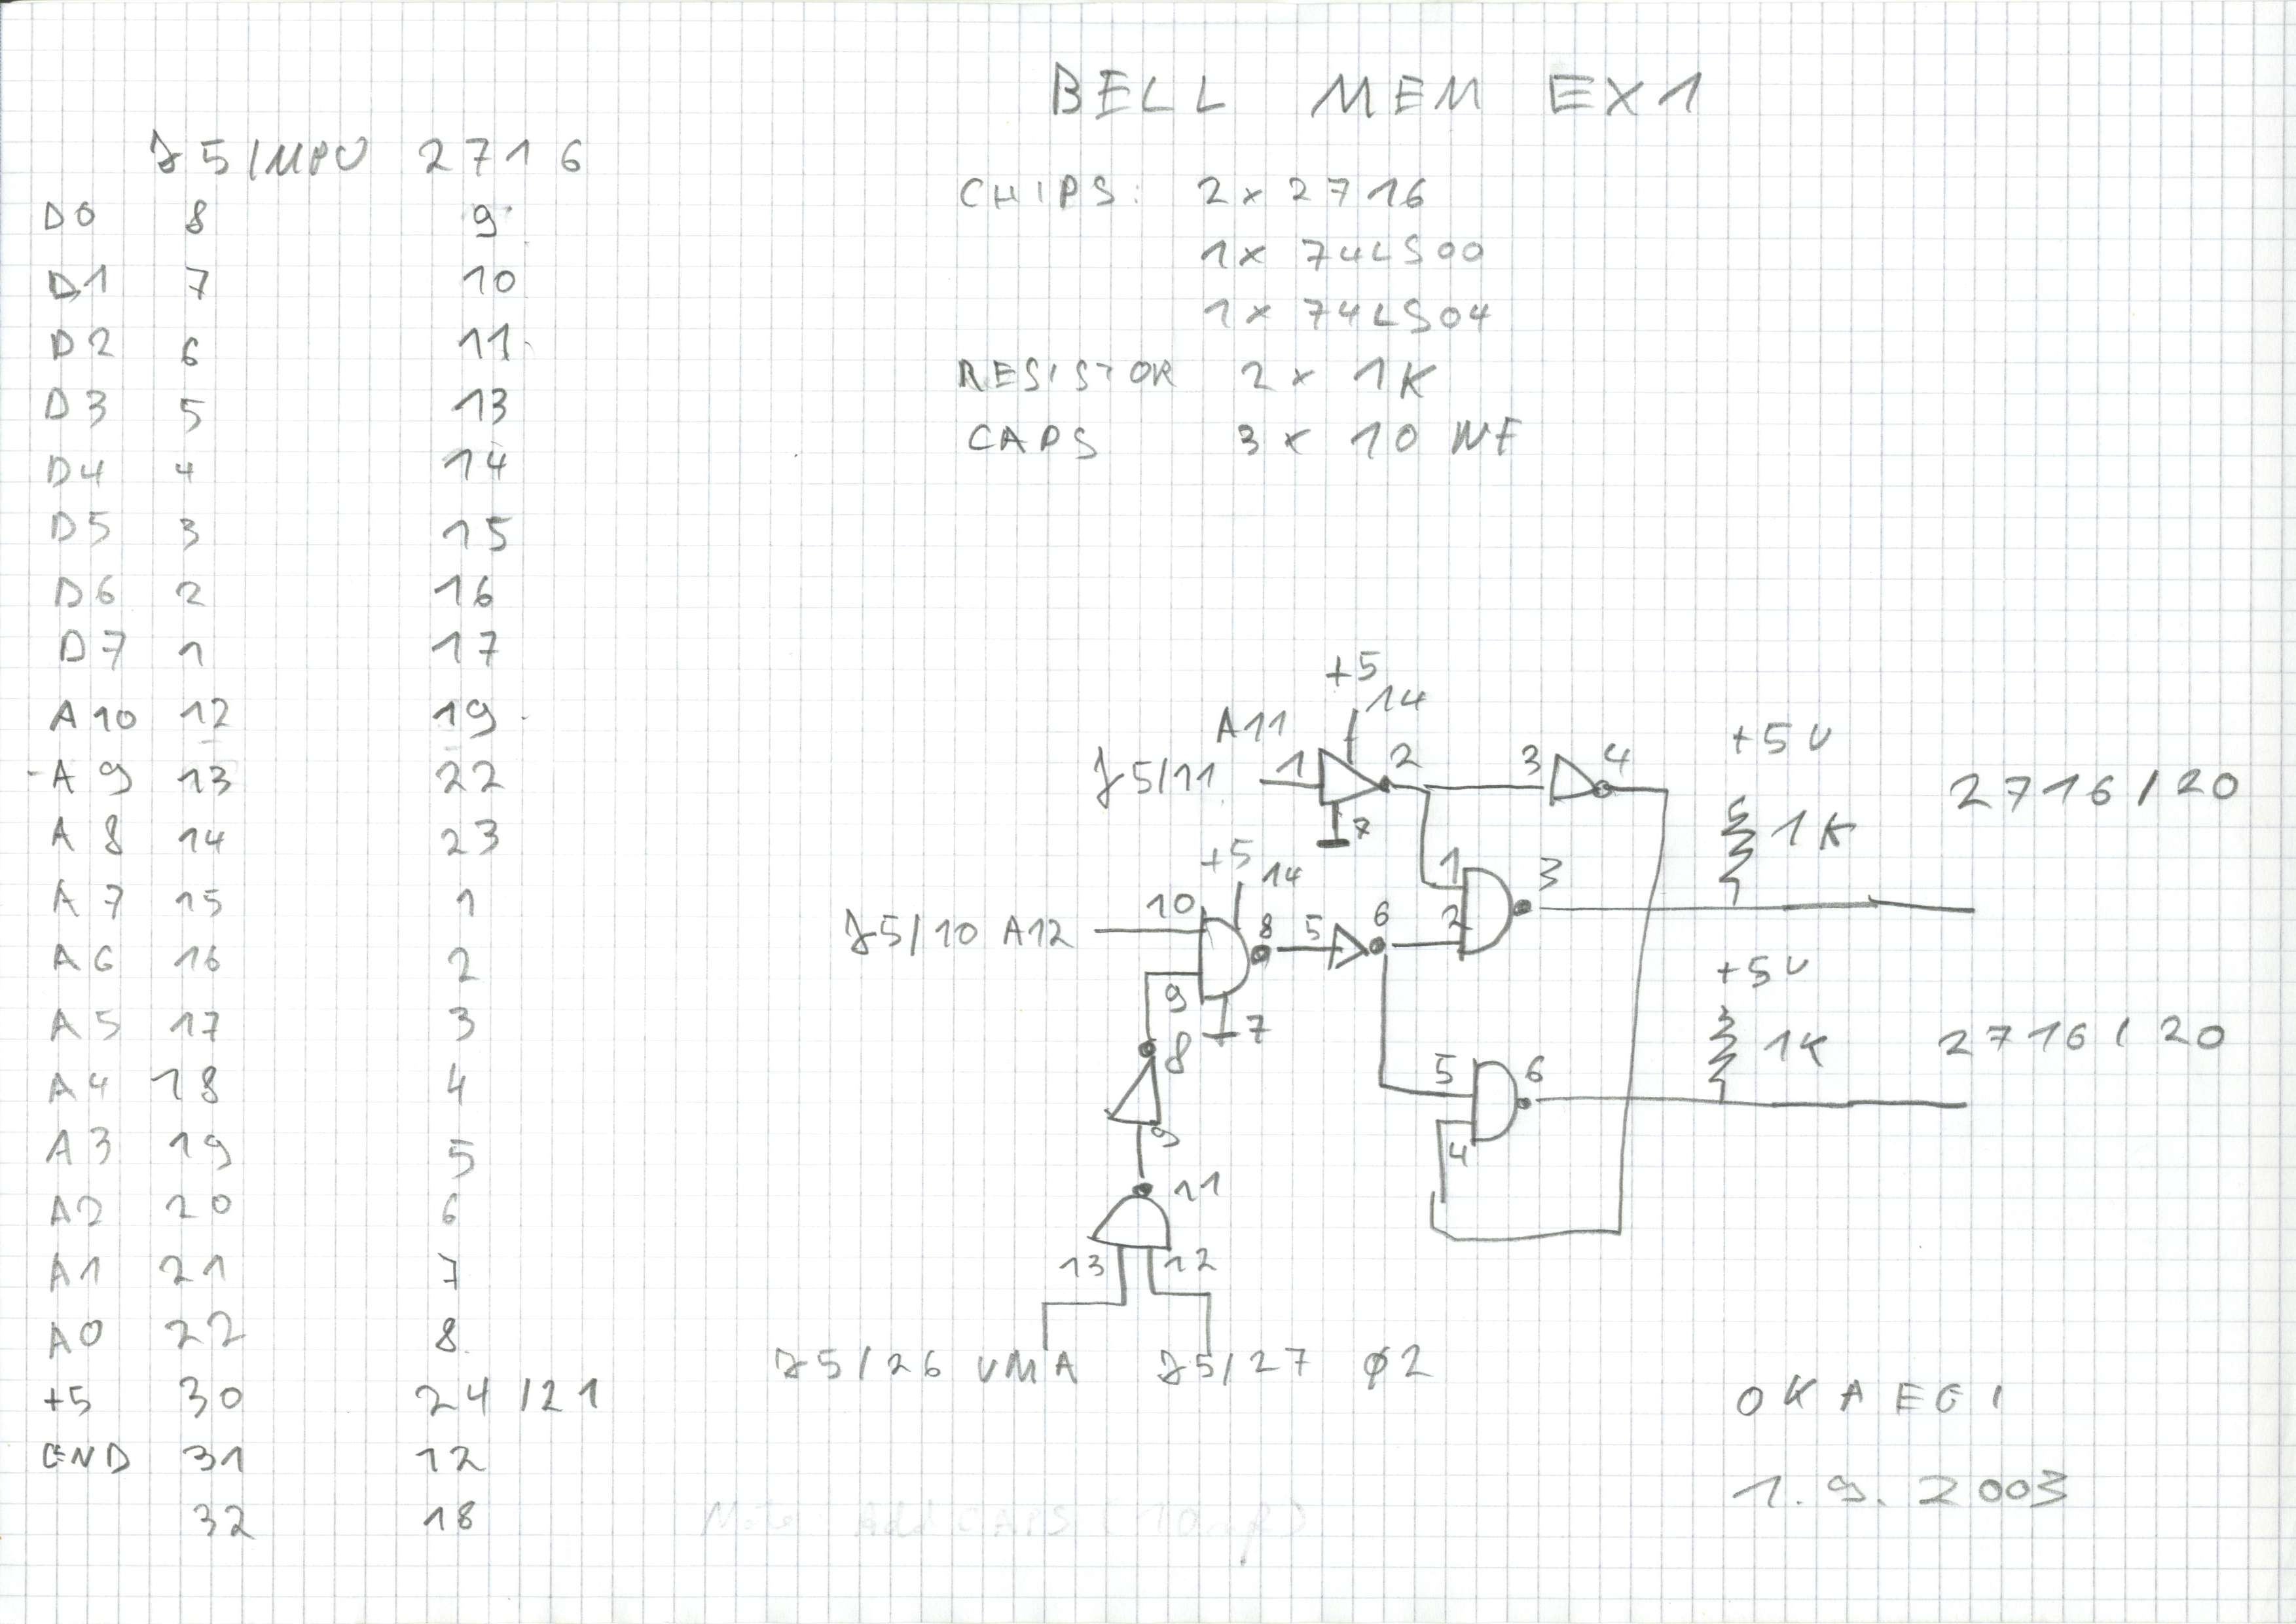 BELL MEM EX1
J5/MPU 2716
D0 8 9
D1 7 10
D2 6 11
D3 5 13
D4 4 14
D5 3 15
D6 2 16
D7 1 17
A10 12 19
A9 13 22
A8 14 23
A7 15 1
A6 16 2
A5 17 3
A4 18 4
A3 19 5
A2 20 6
A1 21 7
A0 22 8
+5 30 24/21
GND 31 12
32 18
CHIPS: 2x 2716
1x 74LS00
1x 74LS04
RESISTOR 2x 1K
CAPS 3x 10 NF
+5
14
A11
J5/11 1 2 3 4
7
+5V
1K
2716/20
+5
14
10
J5/10 A12
8 5 6
9
7
1
2
3
+5V
1K
2716/20
5
4
6
8
9
11
13 12
J5/26 VMA J5/27 φ2
OKAEGI
1. 9. 2003
Note: Add CAPS (10nf)